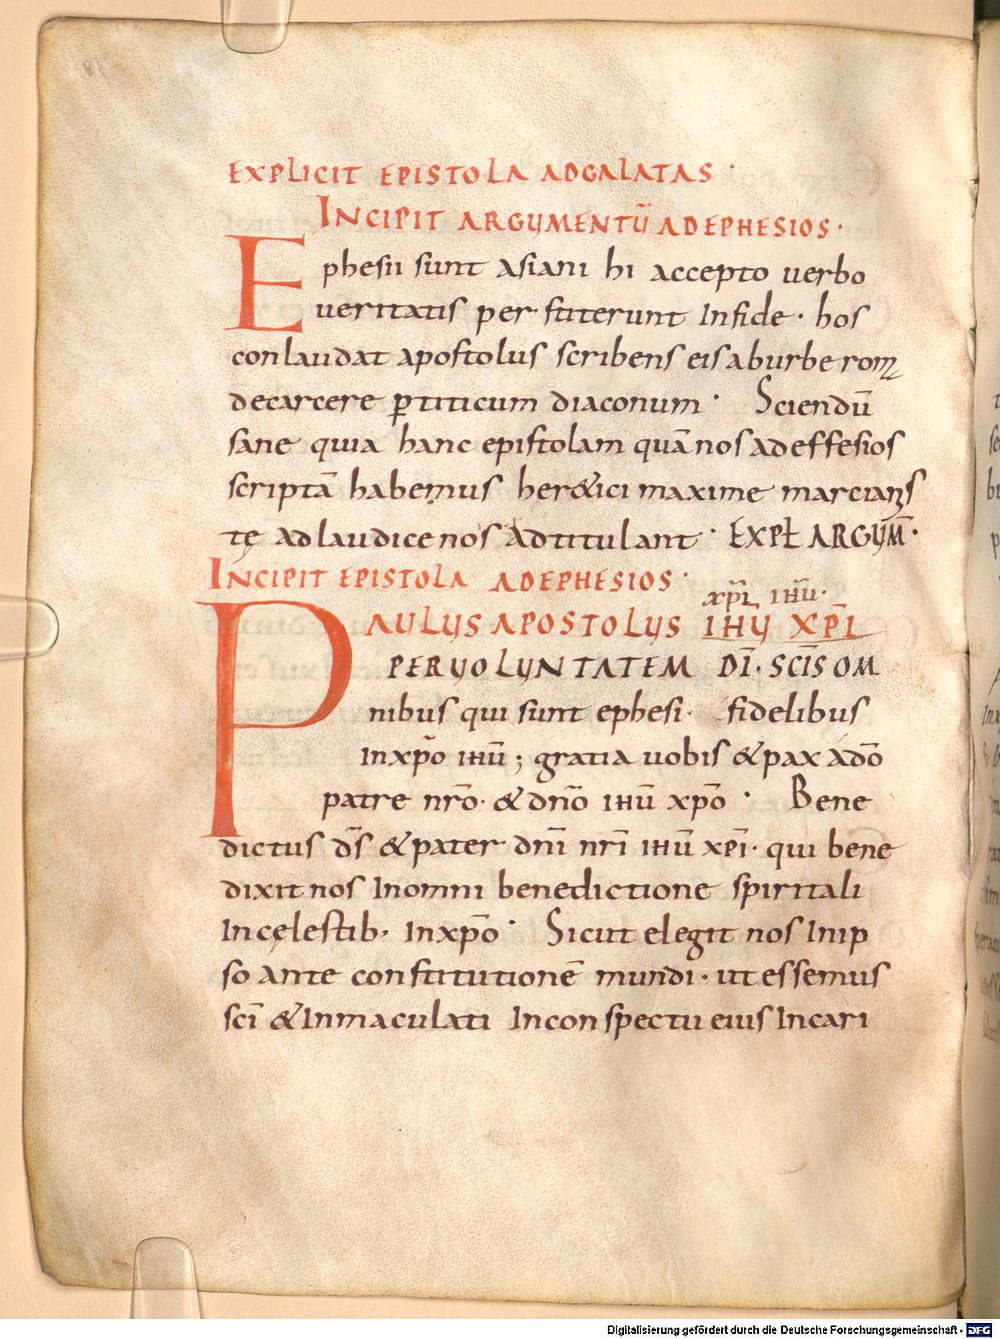 EXPLICIT EPISTOLA ADGALATAS ·
INCIPIT ARGUMENTU̅ ADEPHESIOS ·
Ephesii sunt asiani hi accepto uerbo
ueritatis per stiterunt Infide · hos
conlaudat apostolus scribens eis aburbe rom
decarcere ꝑ titicum diaconum · Sciendu̅
sane quia hanc epistolam qua̅ nos adeffesios
scripta̅ habemus her&ici maxime marcianis
tę adlaudicenos adtitulant · EXPL̅ ARGUM̅ ·
INCIPIT EPISTOLA ADEPHESIOS ·
xp̅i ihu̅ ·
PAULUS APOSTOLUS IHU XP̅I
PER UOLUNTATEM DI̅ · SCI̅S OM
nibus qui sunt ephesi · fidelibus
Inxp̅o ihu̅ ; gratia uobis & pax ado̅
patre nr̅o · & dn̅o ihu̅ xp̅o · Bene
dictus ds̅ & pater dn̅i nr̅i ihu̅ xp̅i · qui bene
dixit nos Inomni benedictione spiritali
Incęlestib· Inxp̅o · Sicut elegit nos Inip
so ante constitutione̅ mundi · ut essemus
sci̅ & Inmaculati Inconspectu eius Incari
Digitalisierung gefördert durch die Deutsche Forschungsgemeinschaft - DFG